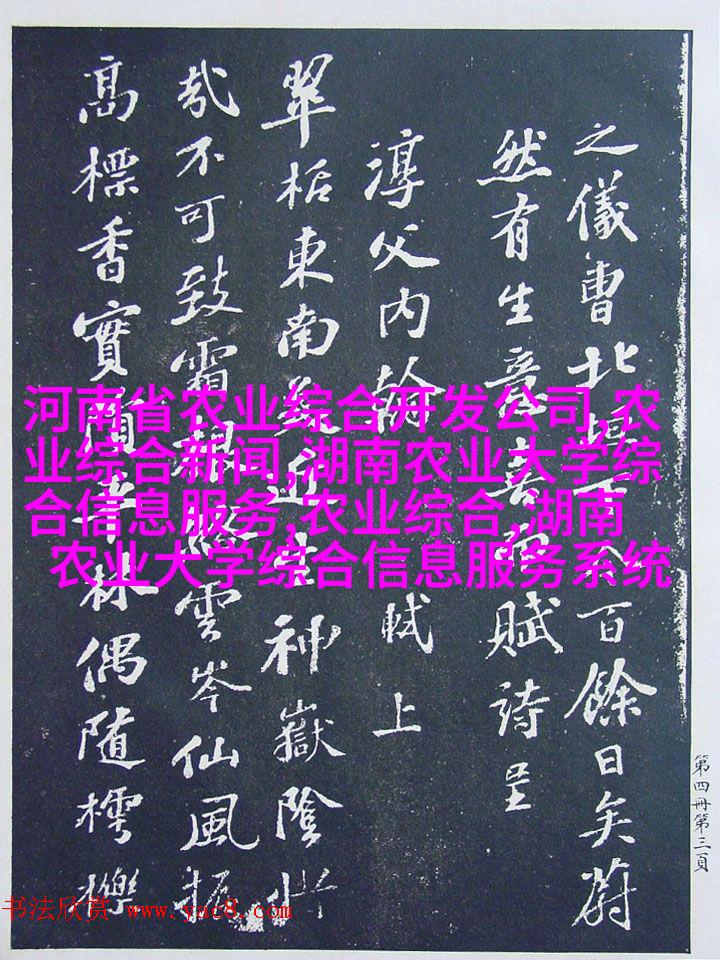 之儀曹北垣下今百餘日矣蔚
然有生意喜而賦詩呈
淳父内翰 軾上
翠栝東南美近生神嶽陰惜
哉不可致霜根絡雲岑仙風振
高標香實隕平林偶隨樗櫟
河南省农业综合开发公司,农
业综合新闻,湖南农业大学综
合信息服务,农业综合,湖南
农业大学综合信息服务系统
第四冊第三頁
书法欣赏 www.yac8.com